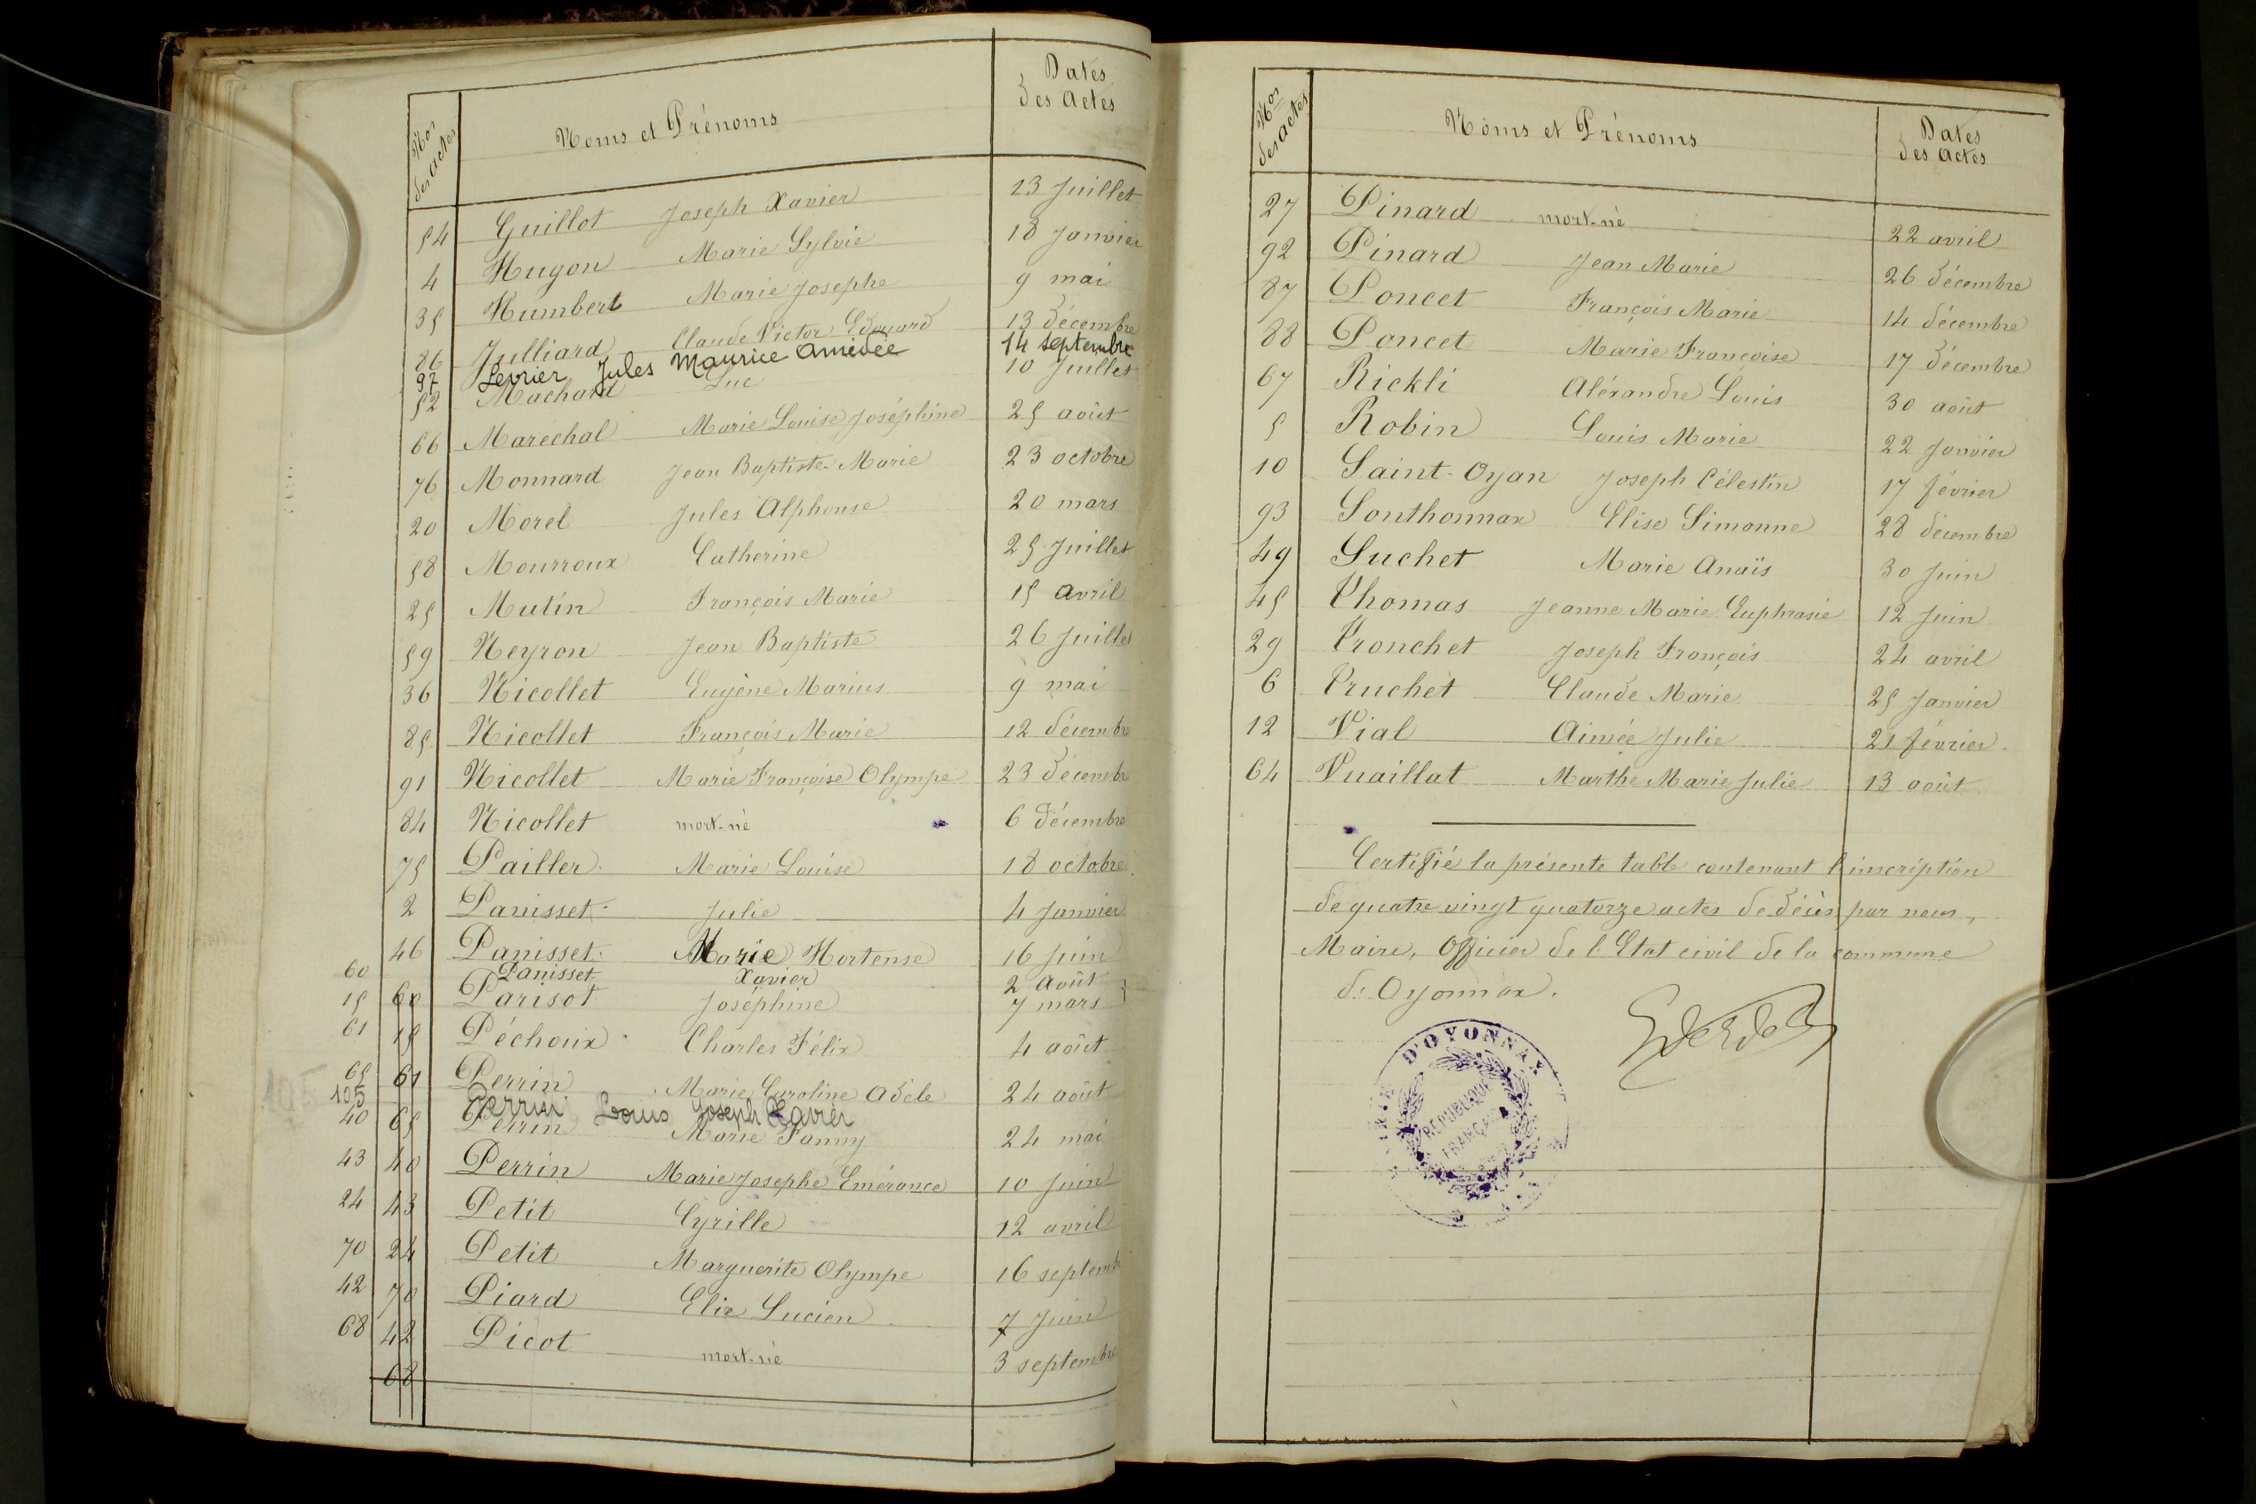 Nos des actes Noms et Prénoms Dates des actes
54 Guillot Joseph Xavier 13 Juillet
4 Hugon Marie Sylvie 18 Janvier
35 Humbert Marie Josephe 9 mai
86 Julliard Claude Victor Edouard 13 décembre
97 Levrier Jules Maurice Amédée 14 septembre
52 Machard Luc 10 Juillet
66 Maréchal Marie Louise Joséphine 25 août
76 Monnard Jean Baptiste Marie 23 octobre
20 Morel Jules Alphonse 20 mars
58 Mourroux Catherine 25 Juillet
25 Mutin François Marie 15 avril
59 Neyron Jean Baptiste 26 Juillet
36 Nicollet Eugène Marius 9 mai
85 Nicollet François Marie 12 décembre
91 Nicollet Marie Françoise Olympe 23 décembre
84 Nicollet mort-né 6 décembre
75 Pailler Marie Louise 18 octobre
2 Panisset Julie 4 Janvier
46 Panisset Marie Hortense 16 Juin
60 Panisset Xavier 2 Août
15 60 Parisot Joséphine 7 mars
61 15 Péchoux Charles Félix 4 août
65 61 Perrin Marie Caroline Adèle 24 août
105 Perrin Louis Joseph Xavier
40 65 Perrin Marie Fanny 24 mai
43 40 Perrin Marie Josephe Emérance 10 Juin
24 43 Petit Cyrille 12 avril
70 24 Petit Marguerite Olympe 16 septemb
42 70 Piard Elie Lucien 7 Juin
68 42 Picot mort-né 3 septembre
68
Nos des actes Noms et Prénoms Dates des actes
27 Pinard mort-né 22 avril
92 Pinard Jean Marie 26 décembre
87 Poncet François Marie 14 décembre
88 Poncet Marie Françoise 17 décembre
67 Rickli Aléxandre Louis 30 août
5 Robin Louis Marie 22 Janvier
10 Saint-Oyan Joseph Célestin 17 février
93 Sonthonnax Elise Simonne 28 décembre
49 Suchet Marie Anaïs 30 Juin
45 Thomas Jeanne Marie Euphrasie 12 Juin
29 Tronchet Joseph François 24 avril
6 Truchet Claude Marie 25 Janvier
12 Vial Aimée Julie 21 février
64 Vuaillat Marthe Marie Julie 13 août
Certifié la présente table contenant l'inscription
de quatre vingt quatorze actes de décès par nous,
Maire, Officier de l'Etat civil de la commune
d'Oyonnax.
MAIRIE D'OYONNAX
RÉPUBLIQUE
FRANÇAISE